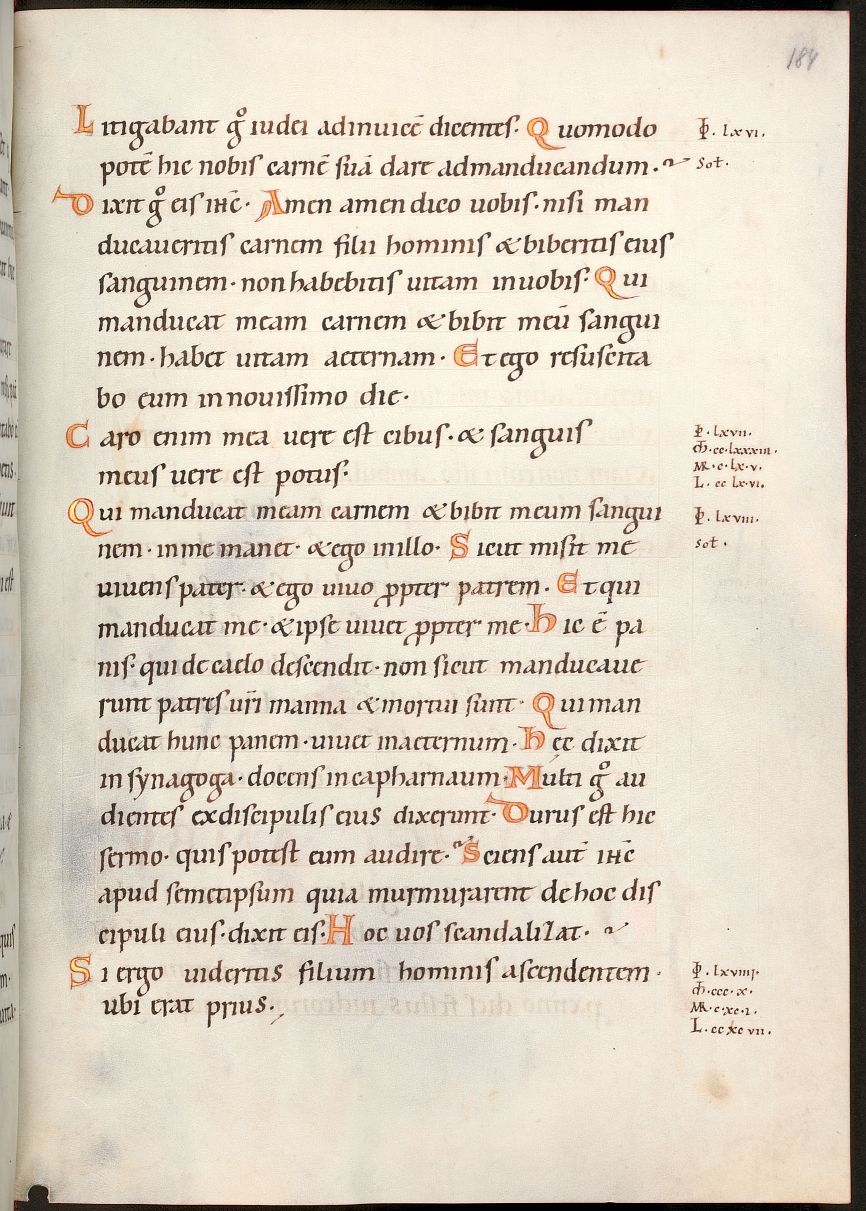 184
Litigabant gͦ iudei adinuicē dicentes· Quomodo
potē hic nobis carnē suā dare admanducandum·
Dixit gͦ eis ihc̄· Amen amen dico uobis· nisi man
ducaueritis carnem filii hominis &biberitis eius
sanguinem· non habebitis uitam inuobis· Qui
manducat meam carnem &bibit meū sangui
nem· habet uitam aeternam· Et ego resuscita
bo eum innouissimo die·
Caro enim mea uere est cibus· & sanguis
meus uere est potus·
Qui manducat meam carnem &bibit meum sangui
nem· inme manet· &ego inillo· Sicut misit me
uiuens pater· &ego uiuo ꝓpter patrem· Et qui
manducat me· &ipse uiuet ꝓpter me· hic ē pa
nis· qui de caelo descendit· non sicut manducaue
runt patres ur̄i manna &mortui sunt· Qui man
ducat hunc panem· uiuet inaeternum· hęc dixit
in synagoga· docens incapharnaum· Multi gͦ au
dientes exdiscipulis eius dixerunt· Durus est hic
sermo· quis potest eum audire· Sciens aut̄ ihc̄
apud semetipsum quia murmurarent dehoc dis
cipuli eius· dixit eis· Hoc uos scandalizat·
Si ergo uideritis filium hominis ascendentem·
ubi erat prius·
I̅o̅. lxvi.
sol̄.
I̅o̅. lxvii.
m̄. cc. lxxxiii.
MR. c. lx. v.
L. cc lx. vi.
I̅o̅. lxviii.
sol̄.
I̅o̅. lxviiii.
m̄. ccc. x.
MR. c. xc. i.
L. cc xc vii.